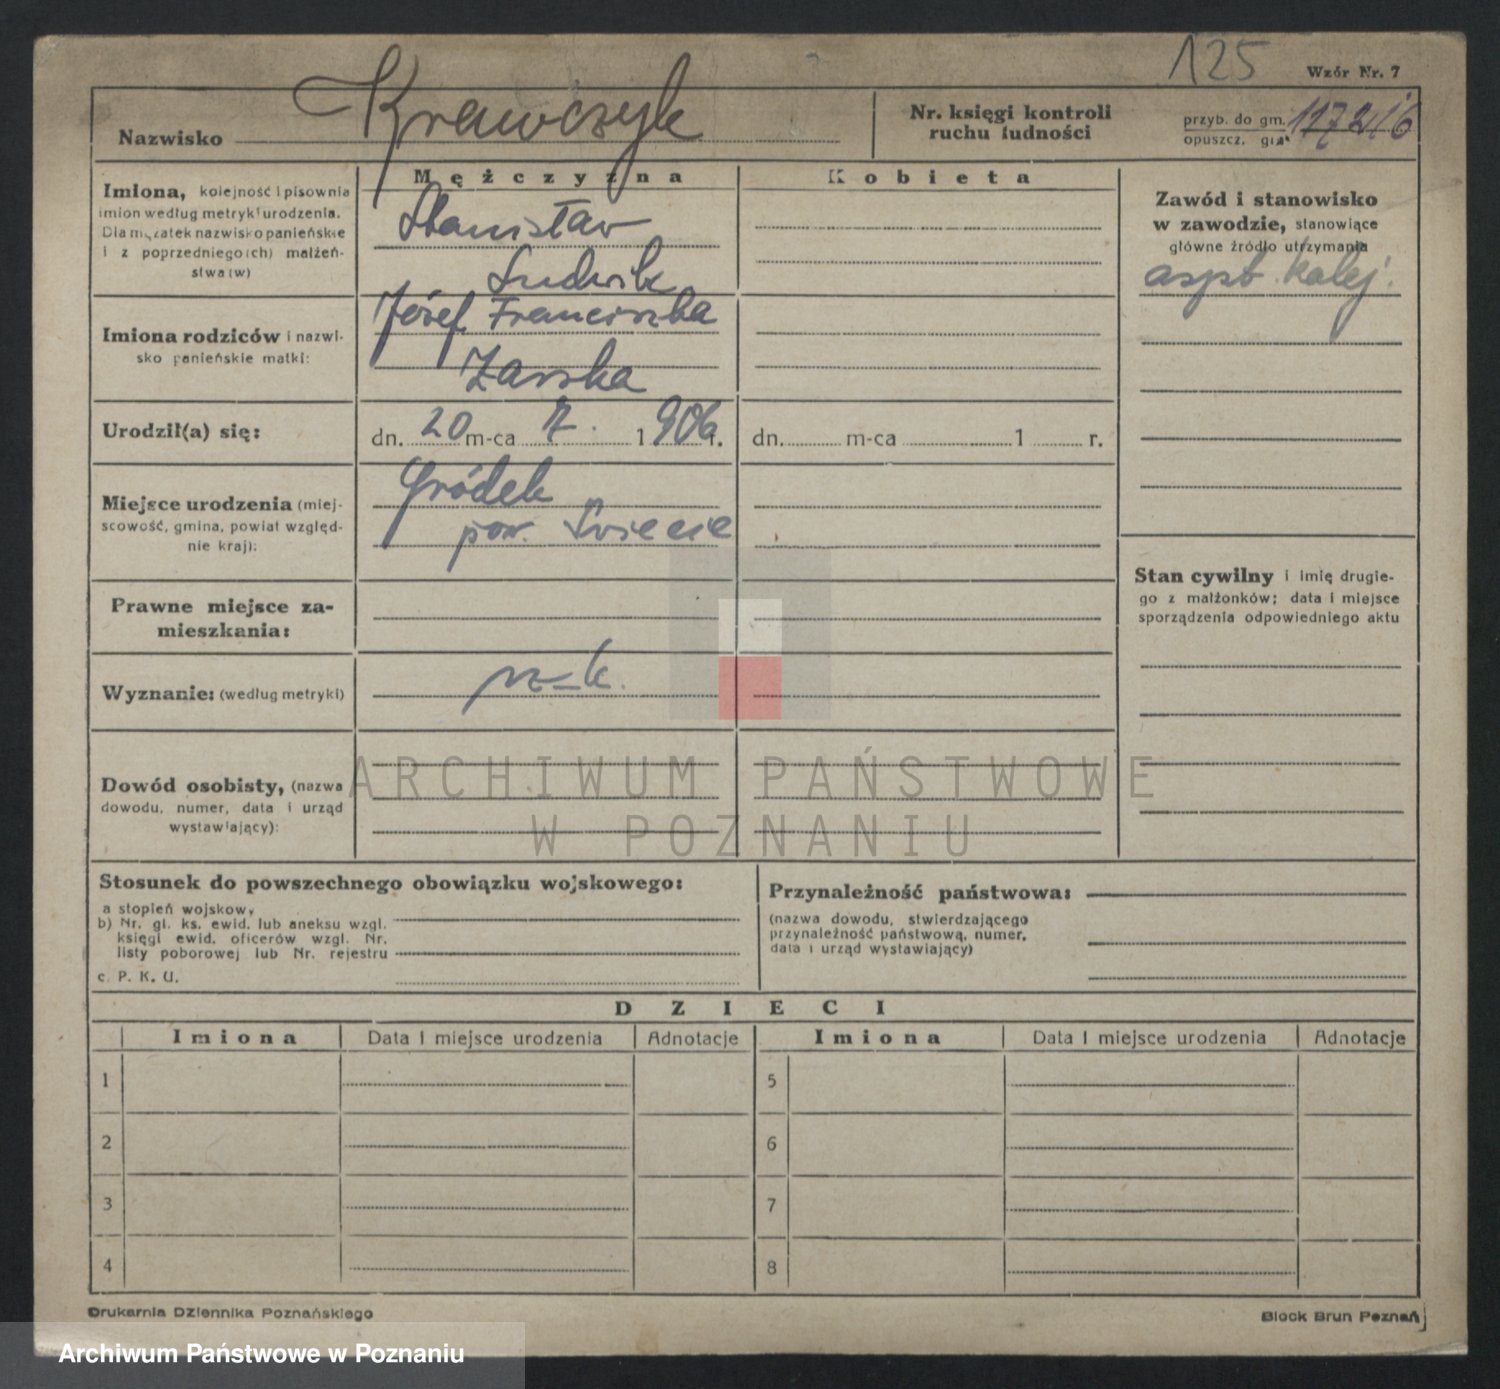 125
Wzór Nr. 7
Nazwisko Krawczyk
Nr. księgi kontroli
ruchu ludności
przyb. do gm.
opuszcz. gm.
Mężczyzna
Kobieta
Imiona, kolejność i pisownia
imion według metryki urodzenia.
Dla mężatek nazwisko panieńskie
i z poprzedniego(ch) małżeń-
stwa (w)
Stanisław
Ludwik
Zawód i stanowisko
w zawodzie, stanowiące
główne źródło utrzymania
kolej.
Imiona rodziców i nazwi-
sko panieńskie matki:
Józef, Franciszka
Żarska
Urodził(a) się:
dn. 20 m-ca 7. 1906 r.
dn. m-ca 1 r.
Miejsce urodzenia (miej-
scowość, gmina, powiat względ-
nie kraj):
Gródek
pow. Świecie
Prawne miejsce za-
mieszkania:
Stan cywilny i imię drugie-
go z małżonków; data i miejsce
sporządzenia odpowiedniego aktu
Wyznanie: (według metryki)
rz-k.
Dowód osobisty, (nazwa
dowodu, numer, data i urząd
wystawiający):
ARCHIWUM PAŃSTWOWE
W POZNANIU
Stosunek do powszechnego obowiązku wojskowego:
a stopień wojskowy
b) Nr. gl. ks. ewid. lub aneksu wzgl.
księgi ewid. oficerów wzgl. Nr.
listy poborowej lub Nr. rejestru
c. P. K. U.
Przynależność państwowa:
(nazwa dowodu, stwierdzającego
przynależność państwową, numer,
data i urząd wystawiający)
DZIECI
Imiona
Data i miejsce urodzenia
Adnotacje
Imiona
Data i miejsce urodzenia
Adnotacje
1
5
2
6
3
7
4
8
Drukarnia Dziennika Poznańskiego
Block Brun Poznań
Archiwum Państwowe w Poznaniu